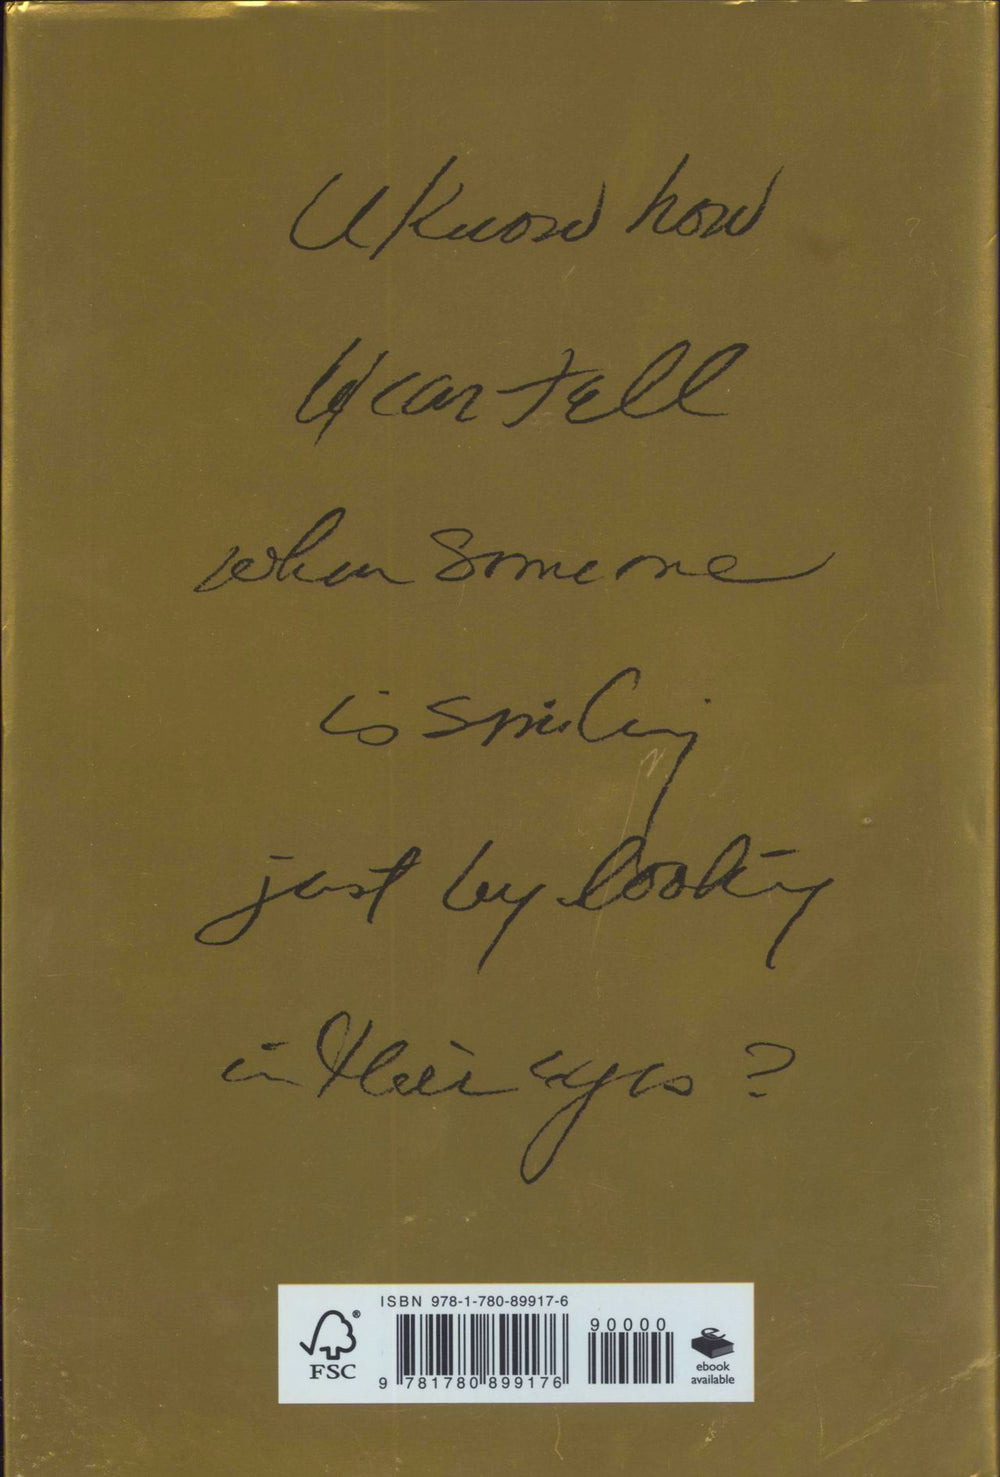 U know how
U can tell
when someone
is smiling
just by looking
in their eyes?
ISBN 978-1-780-89917-6
90000
FSC
®
9 781780 899176
e
ebook
available